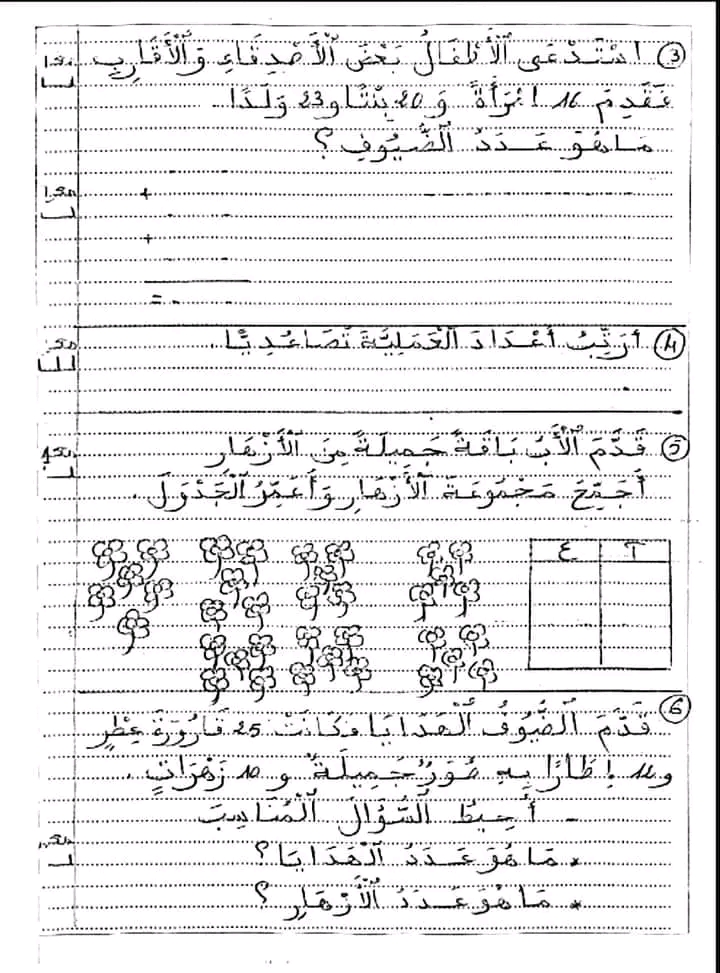 ③ اسْتَدْعَى الْأَطْفَالُ بَعْضَ الْأَصْدِقَاءِ وَالْأَقَارِبِ
فَقَدِمَ 16 امْرَأَةً وَ 20 بِنْتًا و 23 وَلَدًا.
مَا هُوَ عَدَدُ الضُّيُوفِ؟
+
+
=
④ أُرَتِّبُ أَعْدَادَ الْعَمَلِيَّةَ تَصَاعُدِيًّا.
⑤ قَدَّمَ الْأَبُ بَاقَةً جَمِيلَةً مِنَ الْأَزْهَارِ
أُجَمِّعُ مَجْمُوعَةَ الْأَزْهَارِ وَأُعَمِّرُ الْجَدْوَلَ.
ع
⑥ قَدَّمَ الضُّيُوفُ الْهَدَايَا فَكَانَتْ 25 قَارُورَةَ عِطْرٍ
إِطَارًا بِهِ صُوَرٌ جَمِيلَةٌ و 10 زَهْرَاتٍ.
- أُحِيطُ السُّؤَالَ الْمُنَاسِبَ
* مَا هُوَ عَدَدُ الْهَدَايَا؟
* مَا هُوَ عَدَدُ الْأَزْهَارِ؟